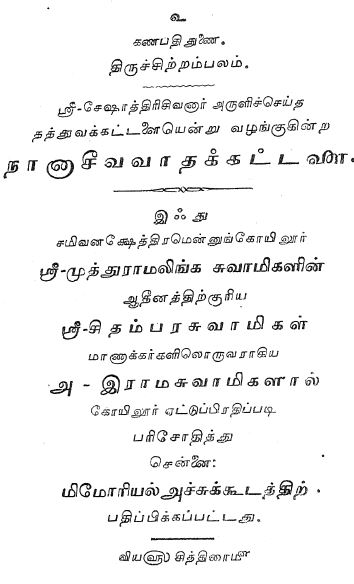 உ
கணபதி துணை.
திருச்சிற்றம்பலம்.
ஸ்ரீ-சேஷாத்திரிசிவனார் அருளிச்செய்த
தத்துவக்கட்டளையென்று வழங்குகின்ற
நானாசீவவாதக்கட்டளை.
இஃது
சமிவனக்ஷேத்திரமென்னுங்கோயிலூர்
ஸ்ரீ-முத்துராமலிங்க சுவாமிகளின்
ஆதீனத்திற்குரிய
ஸ்ரீ-சிதம்பரசுவாமிகள்
மாணாக்கர்களிலொருவராகிய
அ - இராமசுவாமிகளால்
கோயிலூர் ஏட்டுப்பிரதிப்படி
பரிசோதித்து
சென்னை:
மிமோரியல் அச்சுக்கூடத்திற்
பதிப்பிக்கப்பட்டது.
சித்திரைமீ